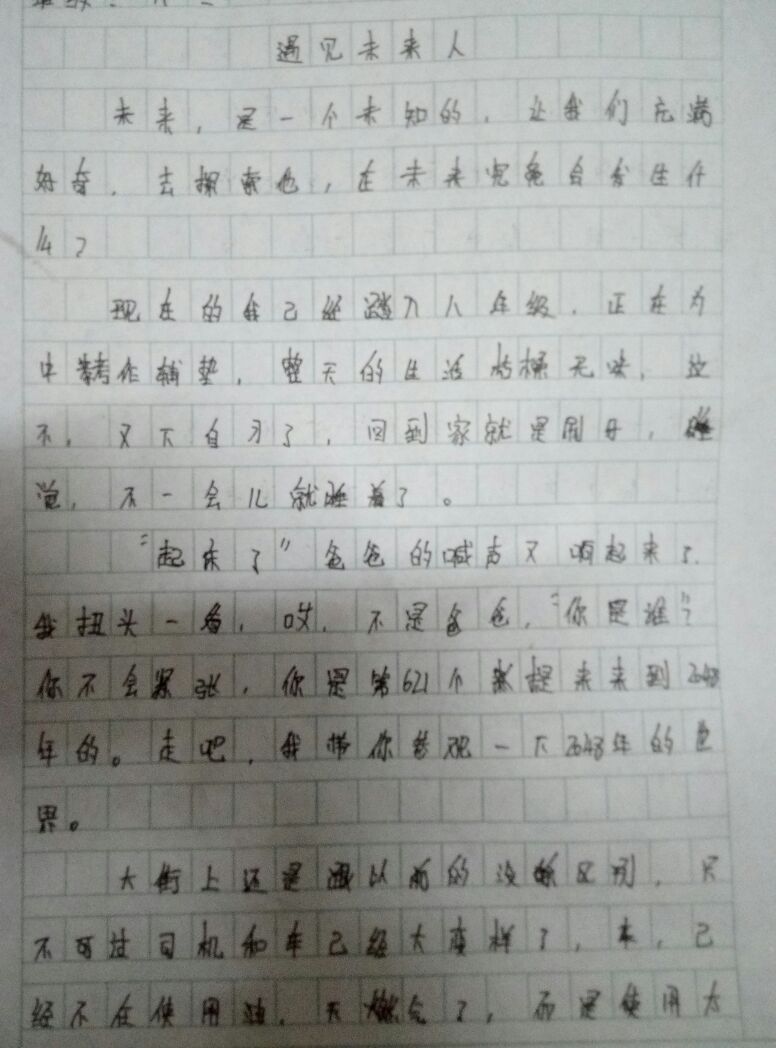 遇见未来人
未来，是一个未知的，让我们充满
好奇，去探索他，在未来究竟会发生什
么？
现在的我已经踏入八年级，正在为
中考作铺垫，整天的生活枯燥无味，这
不，又下自习了，回到家就是刷牙，睡
觉，不一会儿就睡着了。
“起床了”爸爸的喊声又响起来了，
我扭头一看，哎，不是爸爸，“你是谁”？
你不会紧张，你是第621个来到2648
年的。走吧，我带你参观一下2648年的世
界。
大街上还是跟以前的没啥区别，只
不可过司机和车已经大变样了，车，已
经不在使用油，天燃气了，而是使用太